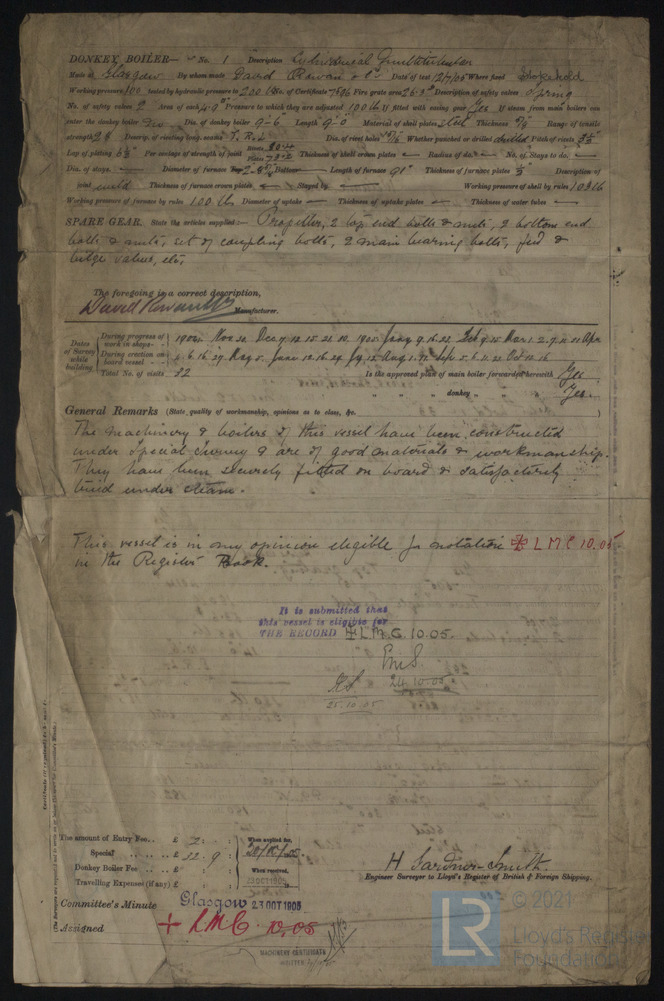 DONKEY BOILER— No. 1 Description Cylindrical Multitubular
Made at Glasgow By whom made David Rowan & Co Date of test 12/7/05 Where fixed Stokehold
Working pressure 100 tested by hydraulic pressure to 200 lbs No. of Certificate 7896 Fire grate area 26.3 Description of safety valves Spring
No. of safety valves 2 Area of each 4.9" Pressure to which they are adjusted 100 lb If fitted with easing gear Yes If steam from main boilers can
enter the donkey boiler No Dia. of donkey boiler 9-6 Length 9-0 Material of shell plates Steel Thickness Range of tensile
strength 28 Descrip. of riveting long. seams Dia. of rivet holes Whether punched or drilled drilled Pitch of rivets
Lap of plating Per centage of strength of joint Rivets 80.4 Plates Thickness of shell crown plates — Radius of do. — No. of Stays to do. —
Dia. of stays. — Diameter of furnace Bottom Length of furnace Thickness of furnace plates Description of
joint weld Thickness of furnace crown plates — Stayed by — Working pressure of shell by rules 103 lb
Working pressure of furnace by rules 100 lbs Diameter of uptake — Thickness of uptake plates — Thickness of water tubes —
SPARE GEAR. State the articles supplied:— Propeller, 2 top end bolts & nuts, 2 bottom end
bolts & nuts, set of coupling bolts, 2 main bearing bolts, feed &
bilge valves, etc.
The foregoing is a correct description,
David Rowan & Co Manufacturer.
Dates of Survey while building
During progress of work in shops— 1904. Nov Dec 7. 12. 15. 21. 1905 Jany 9. 16. 22 Feb 9. 15 Mar 1. 2. 9. Apr
During erection on board vessel— 6. 16. 27. May 5. June 12. 16. 24 Jy 12 Aug 1. Sep 5. 6. 11. 22 Oct 12. 16
Total No. of visits 32 Is the approved plan of main boiler forwarded herewith Yes
" " " donkey " " " Yes.
General Remarks (State quality of workmanship, opinions as to class, &c.
The machinery & boilers of this vessel have been constructed
under Special Survey & are of good materials & workmanship.
They have been securely fitted on board & satisfactorily
tried under steam.
This vessel is in my opinion eligible for notation ✠ L M C 10.05
in the Register Book.
It is submitted that
this vessel is eligible for
THE RECORD ✠ L.M.C. 10.05.
24.10.05
25.10.05
The amount of Entry Fee.. £ 2 : When applied for,
Special .. .. .. .. £ 9 : 20/10/05
Donkey Boiler Fee .. .. £ : When received,
Travelling Expenses (if any) £ : 23 OCT 1905
H Gardner-Smith.
Engineer Surveyor to Lloyd's Register of British & Foreign Shipping.
Committee's Minute Glasgow 23 OCT 1905
Assigned + L.M.C. 10.05
MACHINERY CERTIFICATE
WRITTEN
LR
© 2021
Lloyd's Register
Foundation